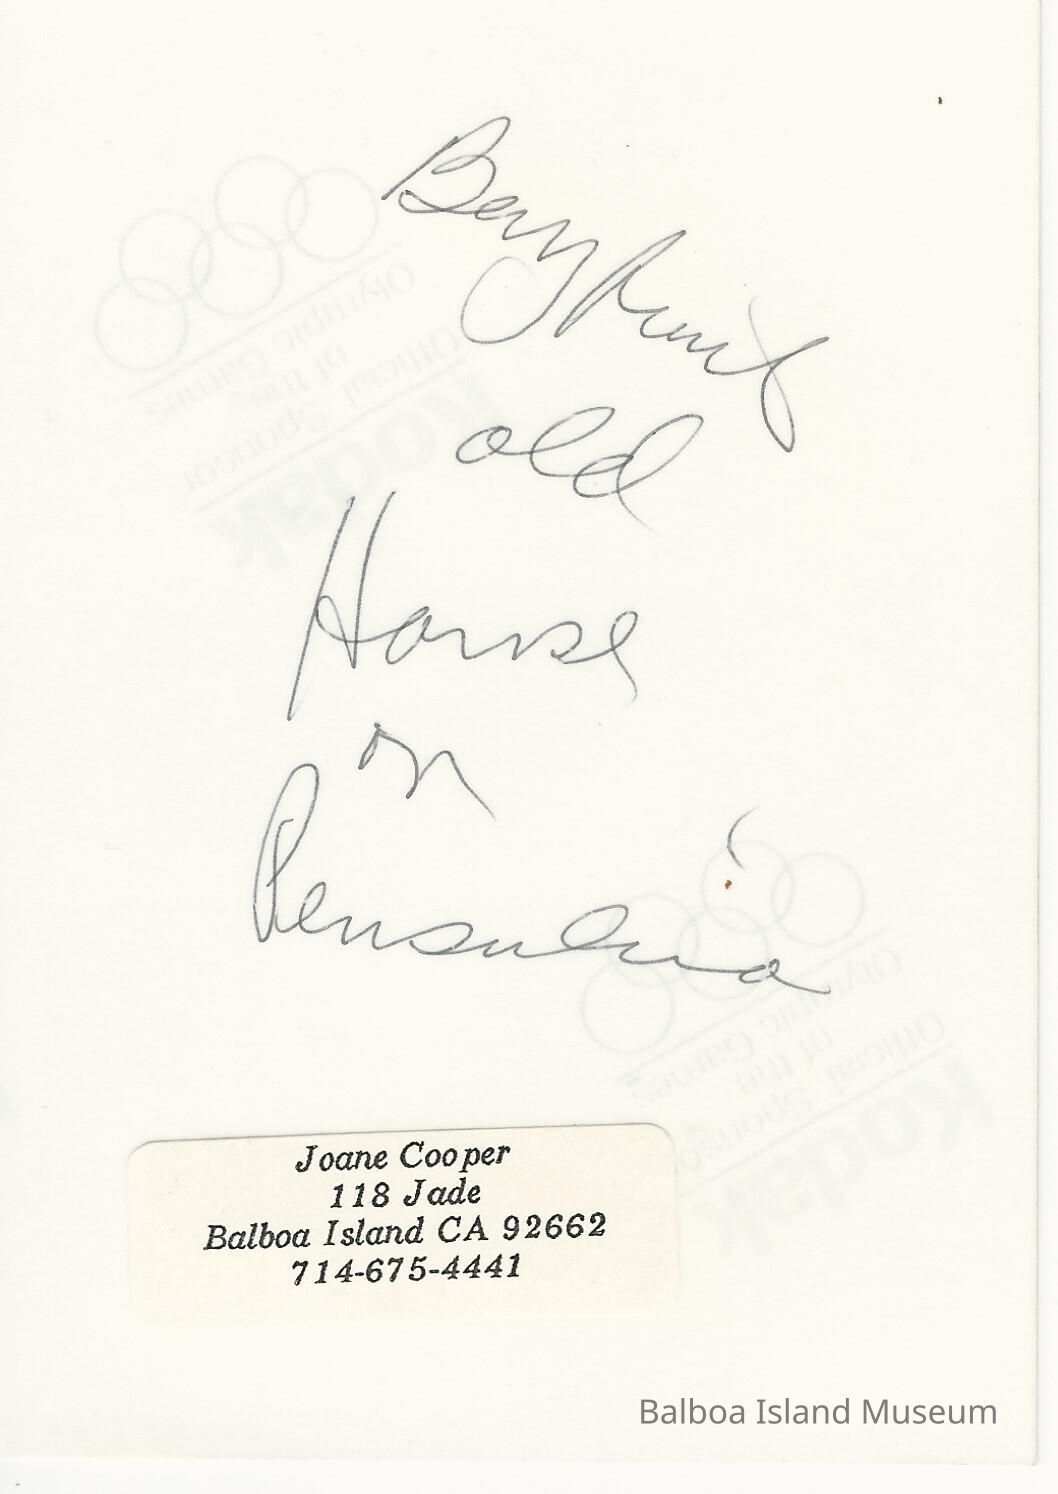 Bayfront
old
House
on
Pensulnia
Kodak
Official Sponsor
of the
Olympic Games
Kodak
Official Sponsor
of the
Olympic Games
Joane Cooper
118 Jade
Balboa Island CA 92662
714-675-4441
Balboa Island Museum